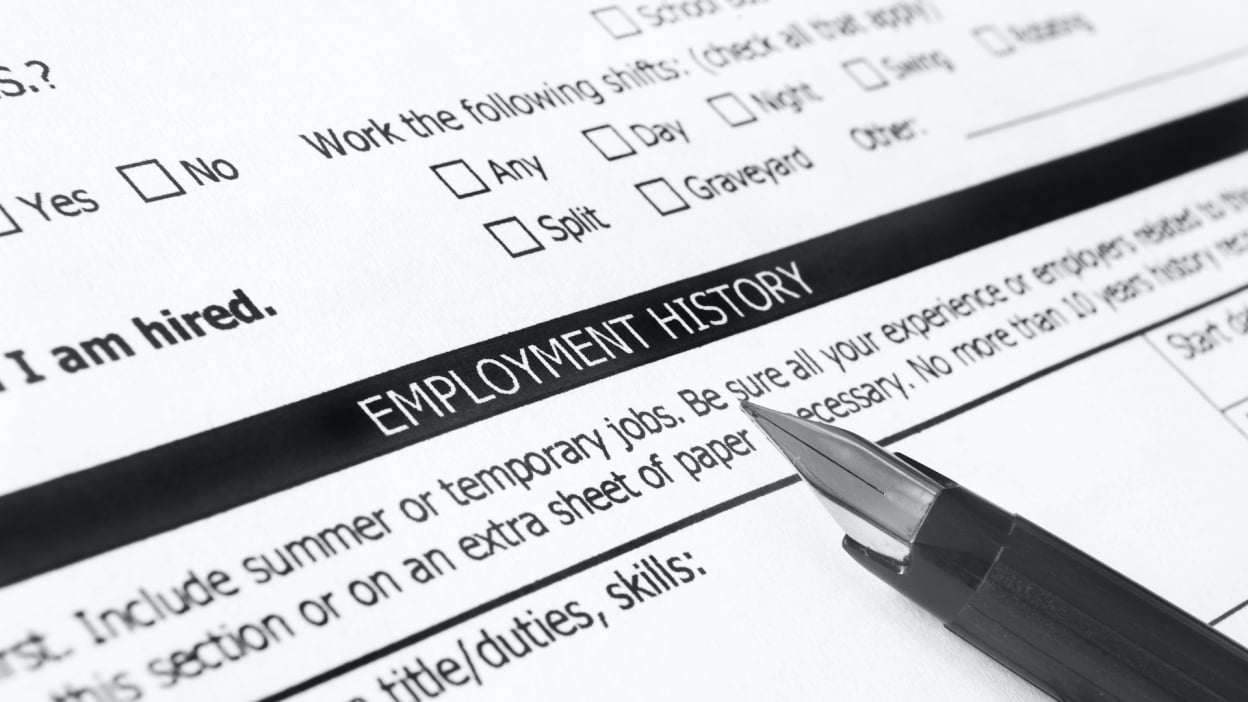 School Bus
S.?
Work the following shifts: (check all that apply)
Yes No
Any Day Night Swing Rotating
Split Graveyard Other:
I am hired.
EMPLOYMENT HISTORY
Include summer or temporary jobs. Be sure all your experience or employers related to this
this section or on an extra sheet of paper necessary. No more than 10 years history
Start
title/duties, skills: